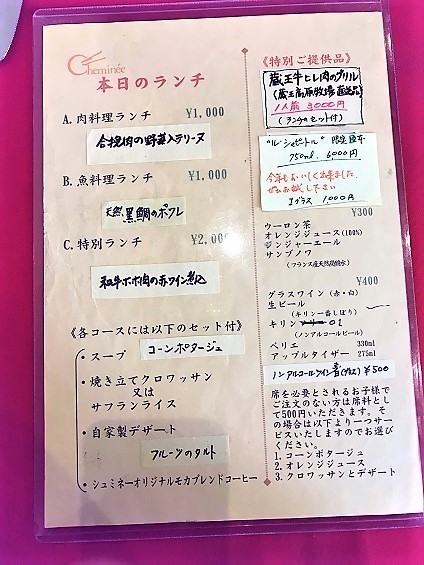 Cheminée
本日のランチ
A. 肉料理ランチ ¥1,000
合挽肉の野菜入テリーヌ
B. 魚料理ランチ ¥1,000
天然黒鯛のポワレ
C. 特別ランチ ¥2,000
和牛ホホ肉の赤ワイン煮込
《各コースには以下のセット付》
・スープ コーンポタージュ
・焼き立てクロワッサン
又は
サフランライス
・自家製デザート
フルーツのタルト
・シュミネーオリジナルモカブレンドコーヒー
《特別ご提供品》
蔵王牛ヒレ肉のグリル
(蔵王高原牧場直送品)
1人前 3000円
(ランチのセット付)
限定
750ml. 6000円
今年もおいしく出来ました。
ぜひお試し下さい
1グラス 1000円
¥300
ウーロン茶
オレンジジュース(100%)
ジンジャーエール
サンブノワ
(フランス産天然炭酸水)
¥400
グラスワイン(赤・白)
生ビール
(キリン一番しぼり)
キリン 01
(ノンアルコールビール)
ペリエ 330ml
アップルタイザー 275ml
ノンアルコールワイン (グラス) ¥500
席を必要とされるお子様で
ご注文のない方は席料とし
て500円いただきます。そ
の場合は以下より一つサー
ビスいたしますのでお選び
ください。
1. コーンポタージュ
2. オレンジジュース
3. クロワッサンとデザート